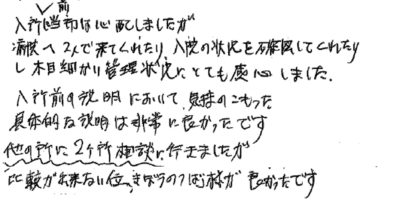 前
入所当初は心配しましたが
病院へ2人で来てくれたり 入院の状況を確認してくれたり
し 木目細かい管理状況にとても感心しました.
入所前の説明において 気持のこもった
具体的な説明は非常に良かったです
他の所に2ヶ所相談に行きましたが
比較が出来ない位、 が良かったです